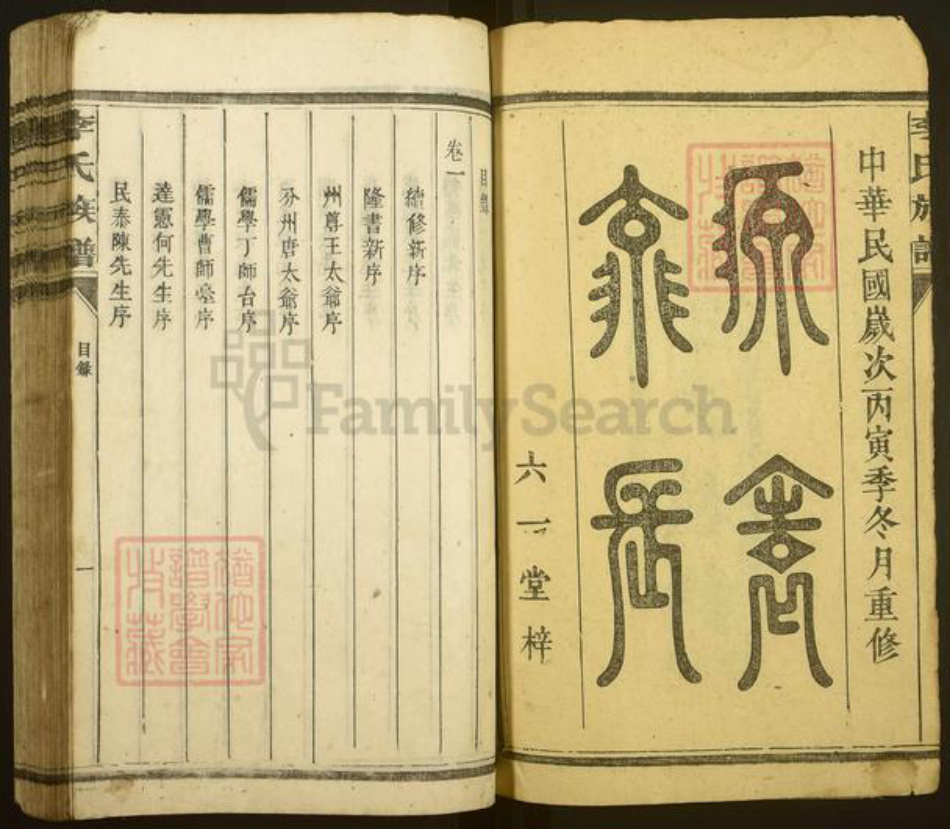 中華民國歲次丙寅季冬月重修
源遠
流長
六一堂梓
李氏族譜
目錄
卷一
續修新序
隆書新序
州尊王太爺序
分州唐太爺序
儒學丁師台序
儒學曹師臺序
達憲何先生序
民泰陳先生序
李氏族譜
目錄
一
FamilySearch